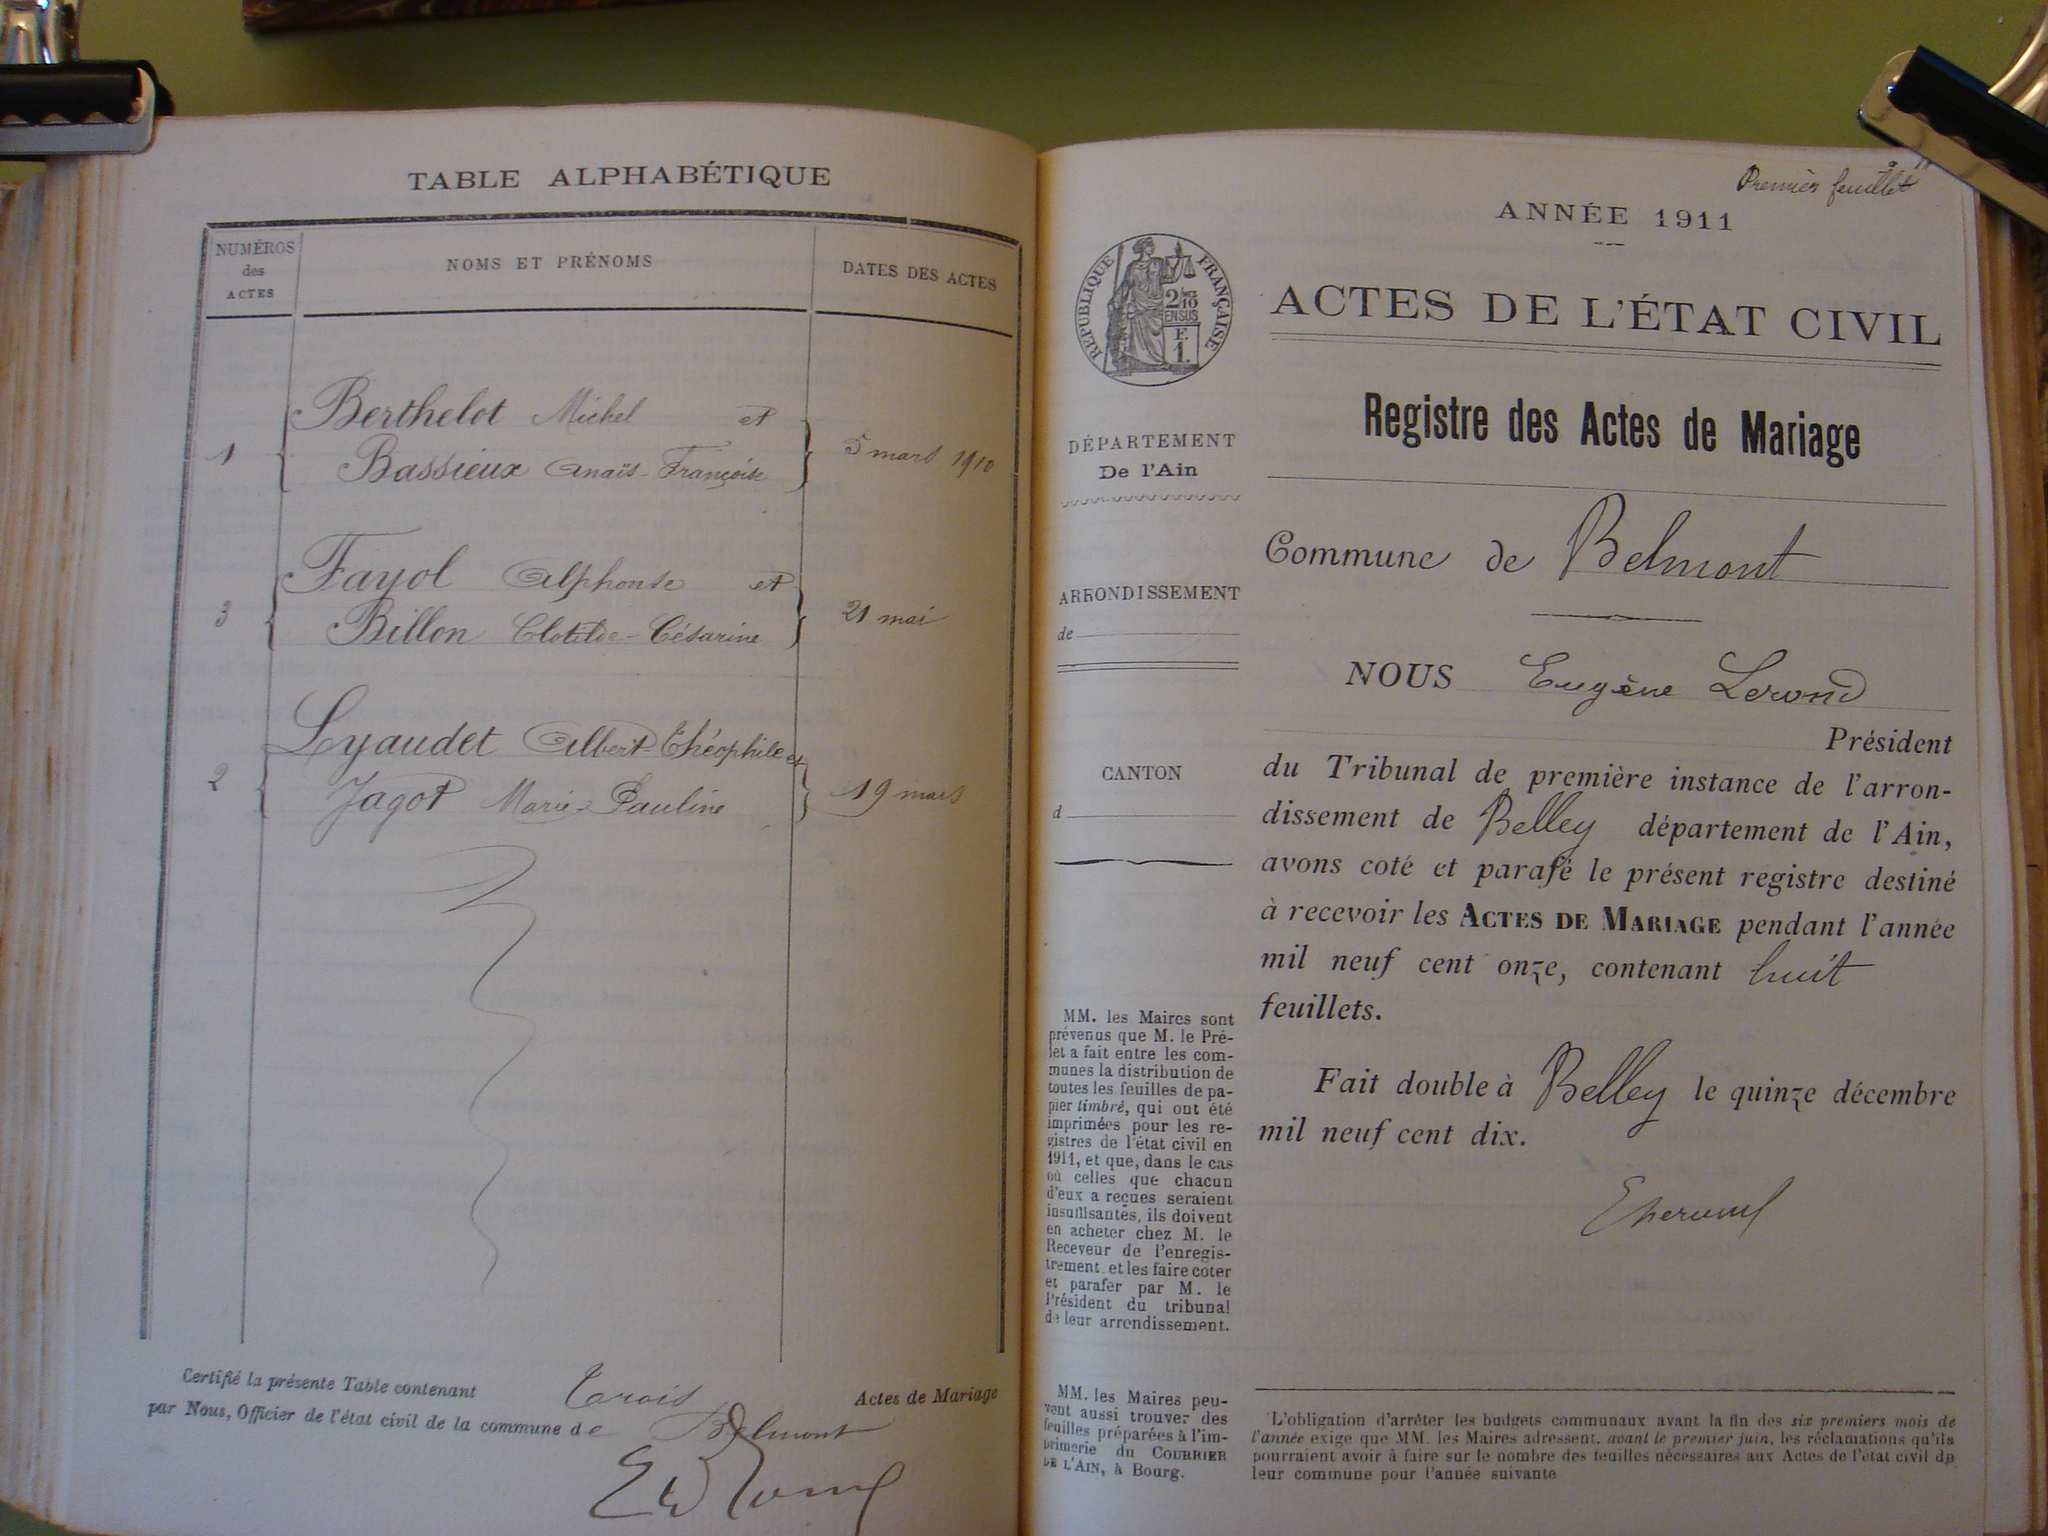 TABLE ALPHABÉTIQUE
NUMÉROS
des
ACTES
NOMS ET PRÉNOMS
DATES DES ACTES
Berthelot Michel et
1
Bassieux Anaïs-Françoise
5 mars 1910
Fayol Alphonse et
3
Billon Clotilde-Césarine
21 mai
Lyaudet Albert-Théophile et
2
Jagot Marie-Pauline
19 mars
Certifié la présente Table contenant Trois Actes de Mariage
par Nous, Officier de l'état civil de la commune de Belmont
Premier feuillet
ANNÉE 1911
RÉPUBLIQUE FRANÇAISE
2/10
EN SUS
E
1.
ACTES DE L'ÉTAT CIVIL
Registre des Actes de Mariage
DÉPARTEMENT
De l'Ain
Commune de Belmont
ARRONDISSEMENT
de
NOUS Eugène Lerond
Président
CANTON
d
du Tribunal de première instance de l'arron-
dissement de Belley département de l'Ain,
avons coté et parafé le présent registre destiné
à recevoir les ACTES DE MARIAGE pendant l'année
mil neuf cent onze, contenant huit
feuillets.
Fait double à Belley le quinze décembre
mil neuf cent dix.
MM. les Maires sont
prévenus que M. le Pré-
fet a fait entre les com-
munes la distribution de
toutes les feuilles de pa-
pier timbré, qui ont été
imprimées pour les re-
gistres de l'état civil en
1911, et que, dans le cas
où celles que chacun
d'eux a reçues seraient
insuffisantes, ils doivent
en acheter chez M. le
Receveur de l'enregis-
trement et les faire coter
et parafer par M. le
Président du tribunal
de leur arrondissement.
MM. les Maires peu-
vent aussi trouver des
feuilles préparées à l'im-
primerie du COURRIER
DE L'AIN, à Bourg.
L'obligation d'arrêter les budgets communaux avant la fin des six premiers mois de
l'année exige que MM. les Maires adressent, avant le premier juin, les réclamations qu'ils
pourraient avoir à faire sur le nombre des feuilles nécessaires aux Actes de l'état civil de
leur commune pour l'année suivante